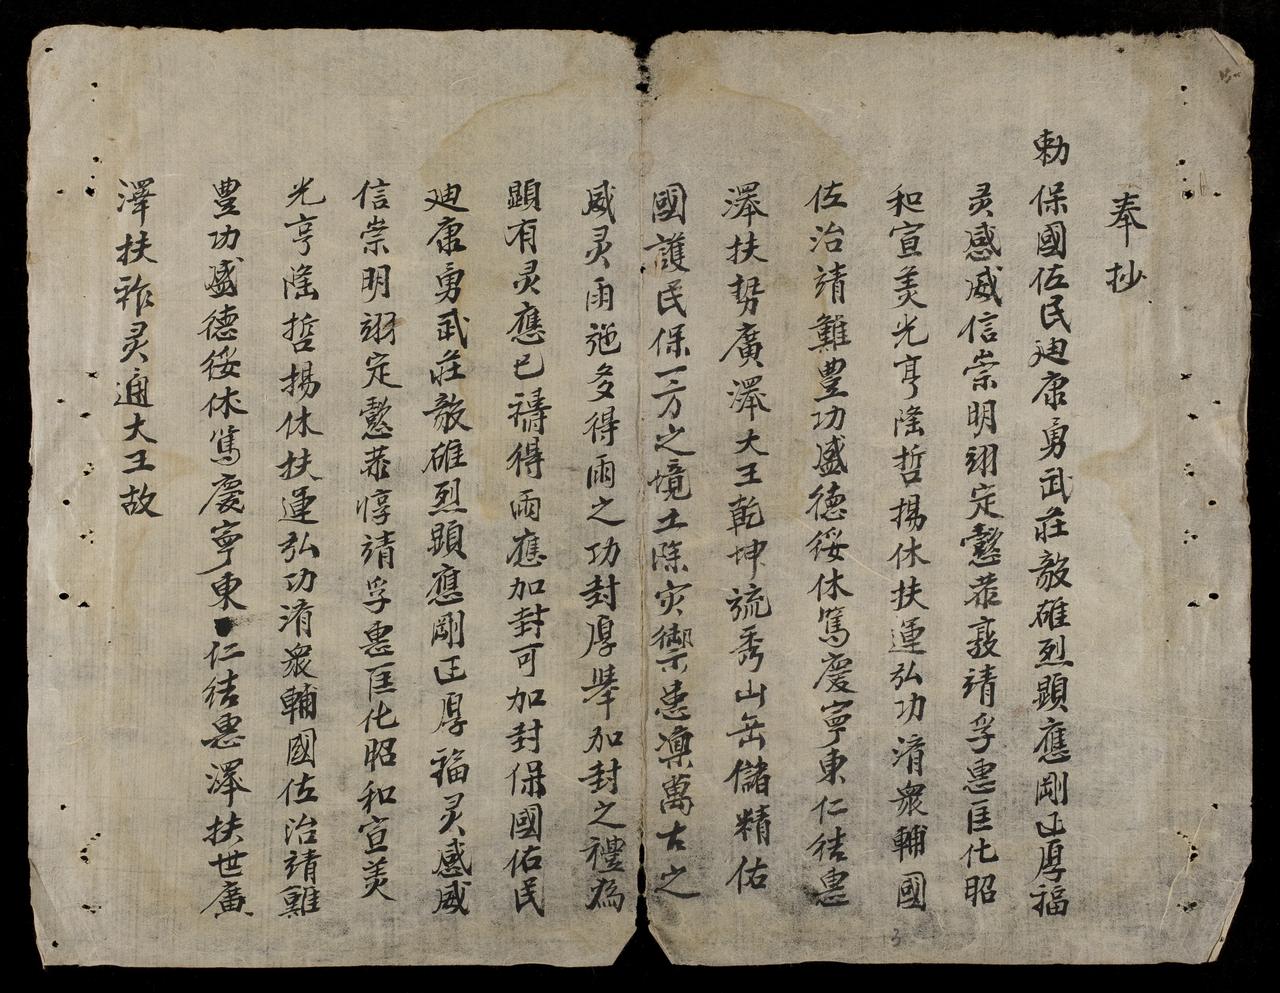 奉抄
勅保國佐民廸康勇武莊毅確烈顕應剛正厚福
灵感威信崇明翊定懿恭敦靖孚惠匡化昭
和宣美光亨隆哲揚休扶運弘功淯衆輔國
佐治靖難豊功盛德綏休篤慶寧東仁结惠
澤扶势廣澤大王乾坤毓秀山岳儲精佑
國護民保一方之境土除灾禦患凜萬古之
威灵雨施多得雨之功封厚舉加封之禮為
顕有灵應已禱得雨應加封可加封保國佑民
廸康勇武莊毅確烈顕應剛正厚福灵感威
信崇明翊定懿恭惇靖孚惠匡化昭和宣美
光亨隆哲揚休扶運弘功淯衆輔國佐治靖難
豊功盛德綏休篤慶寧東仁结惠澤扶世廣
澤扶祚灵通大王故